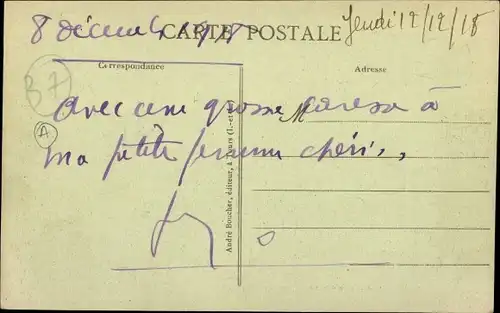 8 décembre 1918 CARTE POSTALE Jeudi 12/12/18
Correspondance
Adresse
B7
avec une grosse caresse à
M
A
ma petite femme chérie,
André Boucher, éditeur, à Tours (I.-et-L.)